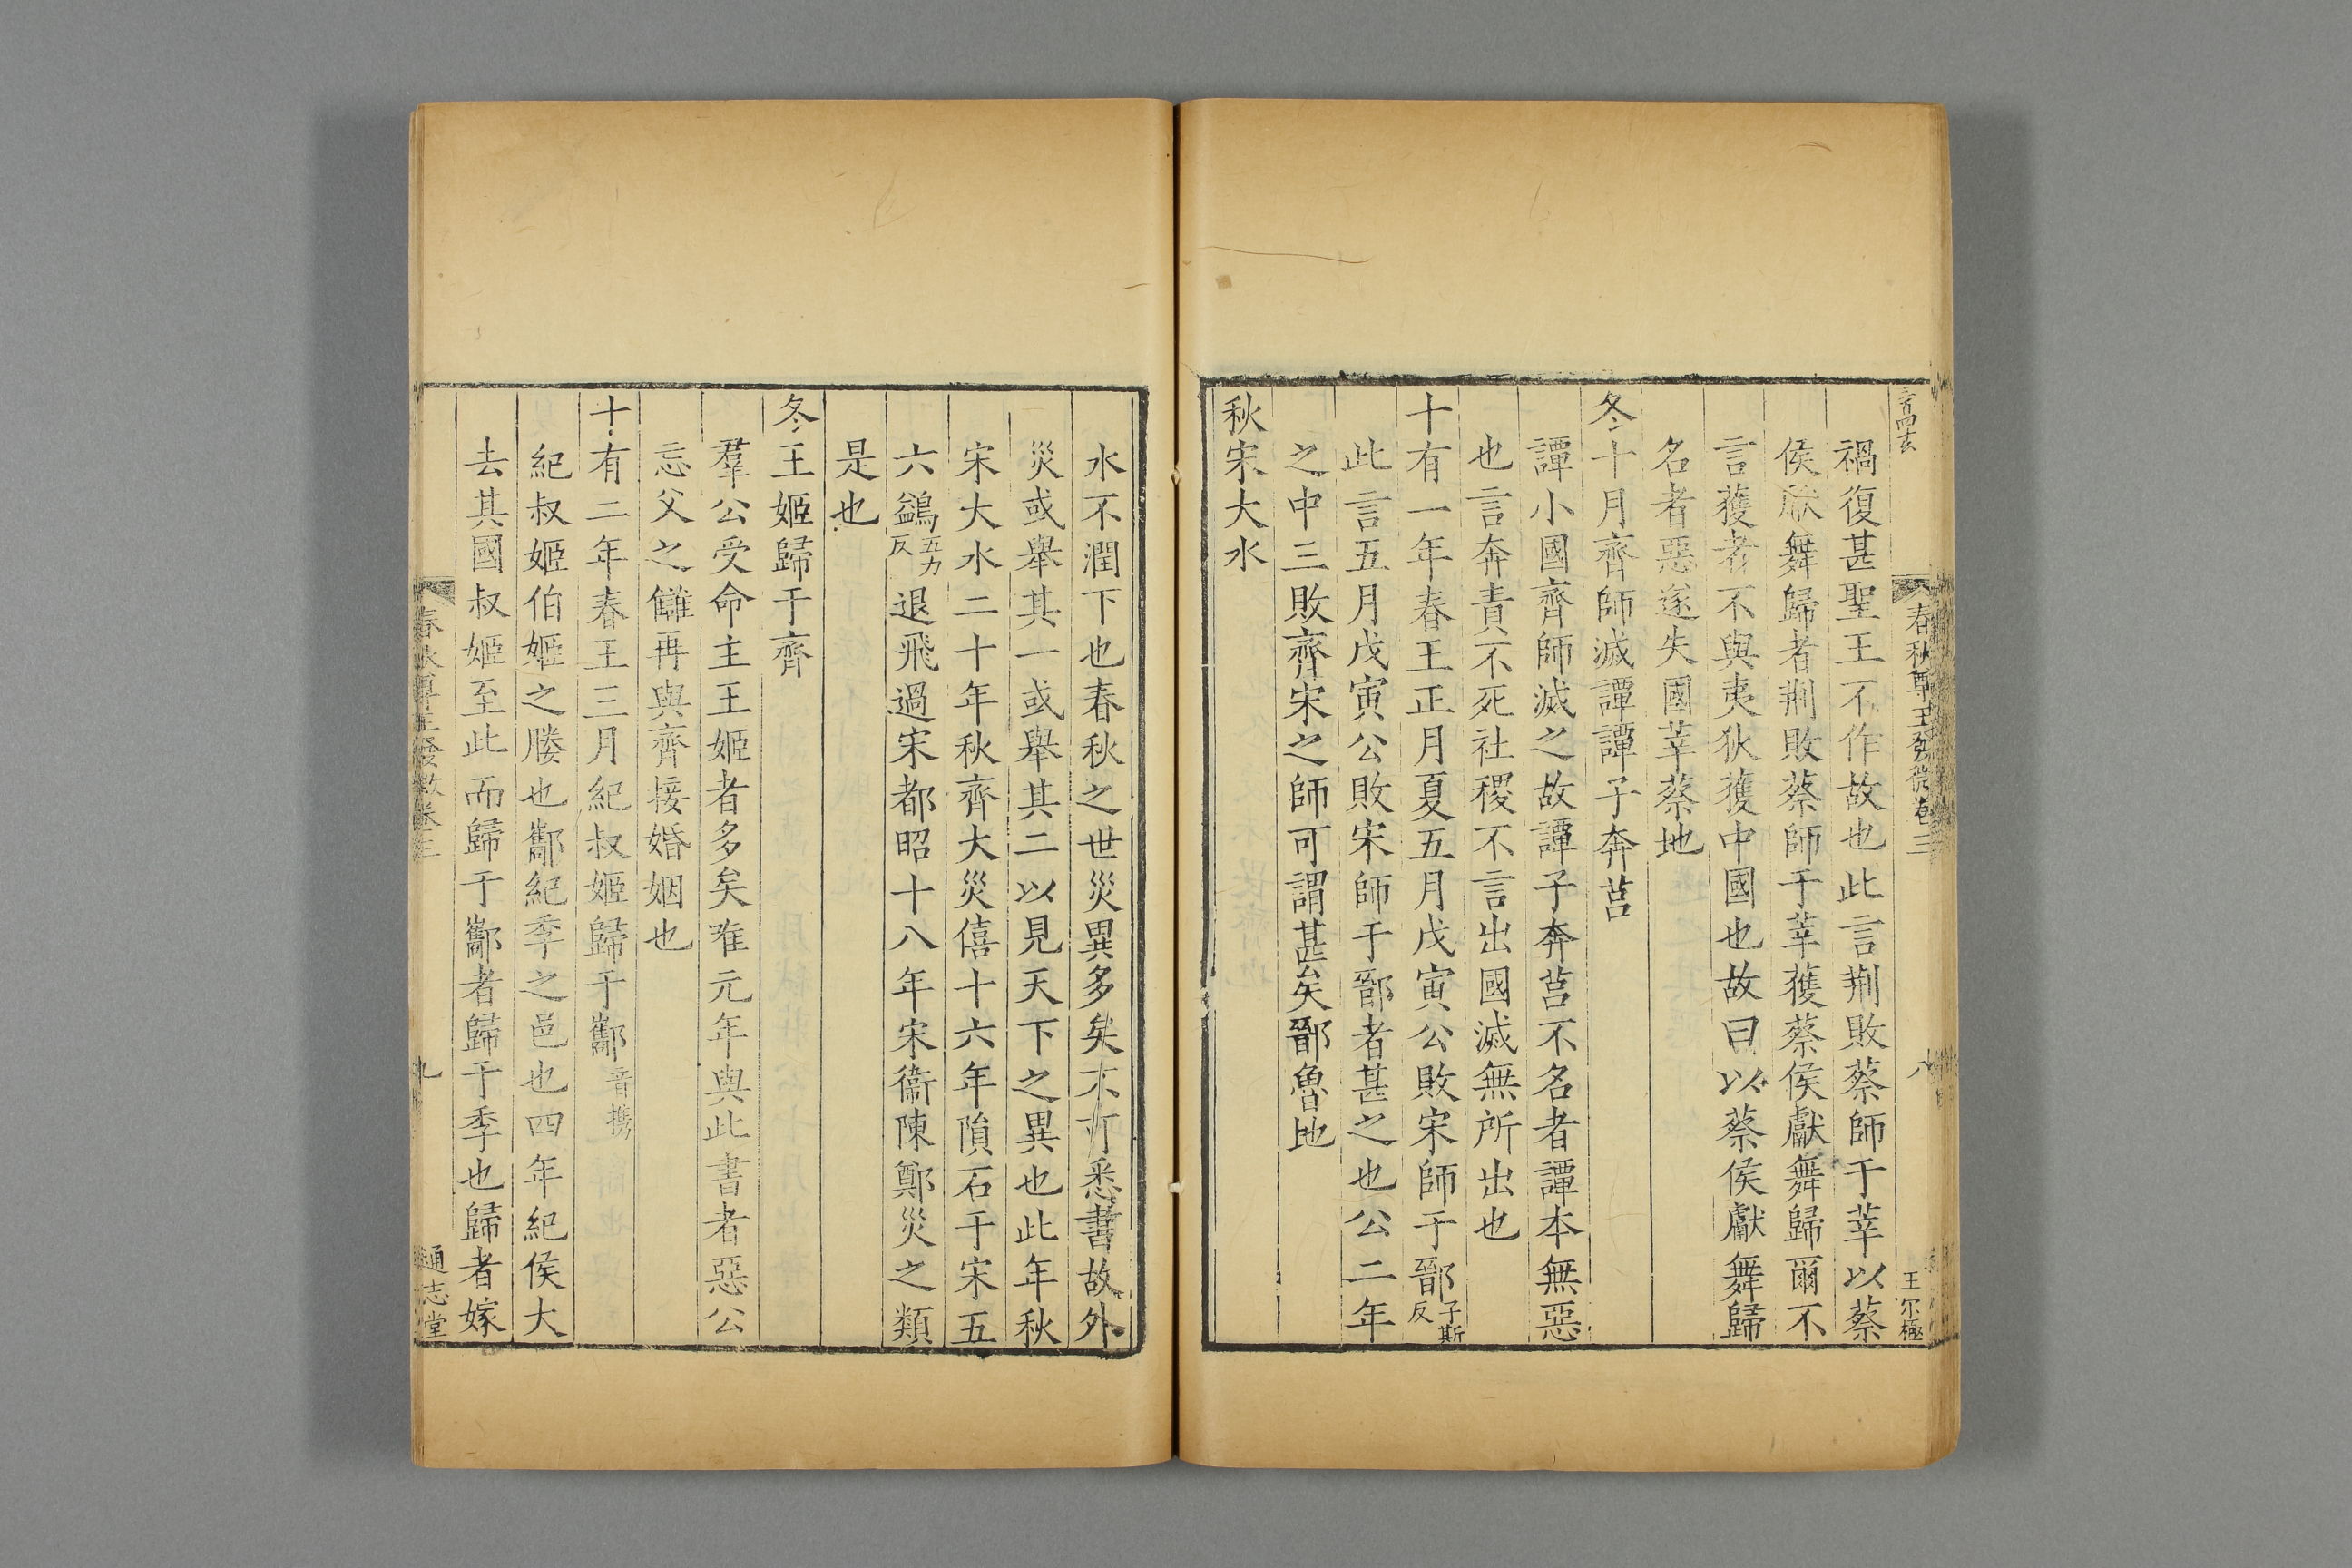 春秋尊王發微卷三
八
王尔極
禍復甚聖王不作故也此言荆敗蔡師于莘以蔡
侯獻舞歸者荆敗蔡師于莘獲蔡侯獻舞歸爾不
言獲者不與夷狄獲中國也故曰以蔡侯獻舞歸
名者惡遂失國莘蔡地
冬十月齊師滅譚譚子奔莒
譚小國齊師滅之故譚子奔莒不名者譚本無惡
也言奔責不死社稷不言出國滅無所出也
十有一年春王正月夏五月戊寅公敗宋師于鄑子斯反
此言五月戊寅公敗宋師于鄑者甚之也公二年
之中三敗齊宋之師可謂甚矣鄑魯地
秋宋大水
水不潤下也春秋之世災異多矣不可悉書故外
災或舉其一或舉其二以見天下之異也此年秋
宋大水二十年秋齊大災僖十六年隕石于宋五
六鷁五力反退飛過宋都昭十八年宋衞陳鄭災之類
是也
冬王姬歸于齊
羣公受命主王姬者多矣唯元年與此書者惡公
忘父之讎再與齊接婚姻也
十有二年春王三月紀叔姬歸于酅音攜
紀叔姬伯姬之媵也酅紀季之邑也四年紀侯大
去其國叔姬至此而歸于酅者歸于季也歸者嫁
春秋尊王發微卷三
九
通志堂